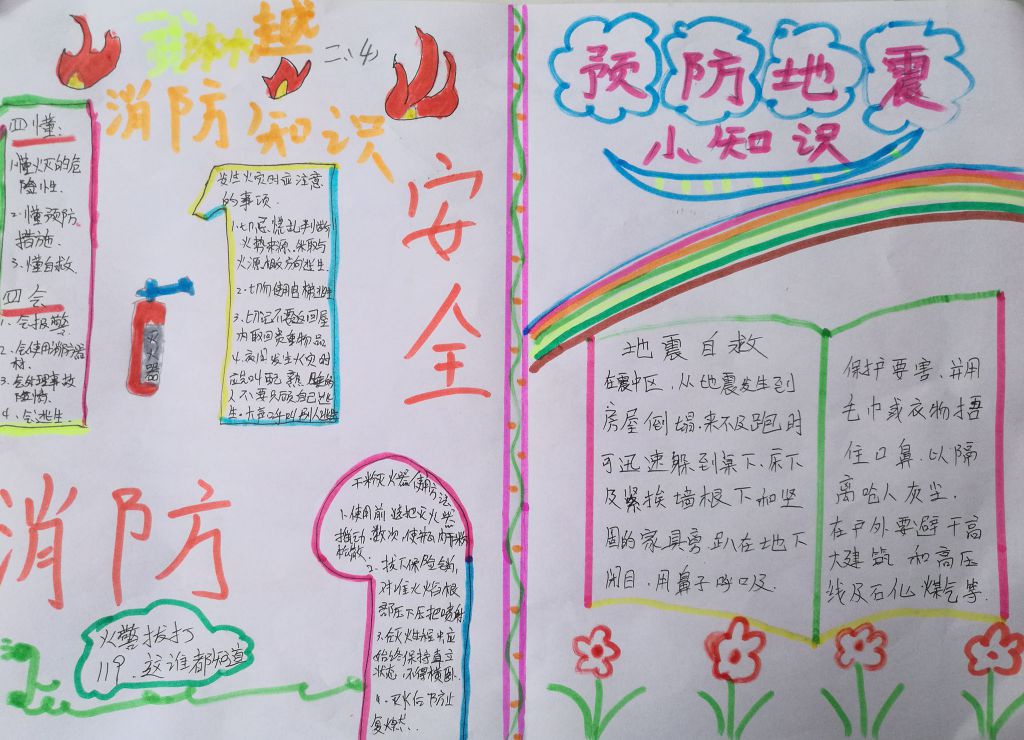 越
二、4)
消防知识
四懂:
1.懂火灾的危
险性.
2.懂预防
措施.
3.懂自救.
四会
1.会报警
2.会使用消防器
材.
3.会处理事故
险情.
4.会逃生.
灭火器
发生火灾时应注意
的事项.
1.切忌慌乱判断
火势来源,采取与
火源相反方向逃生
2.切勿使用电梯逃生
3.切记不要返回屋
内取回贵重物品
4.夜间发生火灾时
应叫醒熟睡的
人不要只顾自己逃
生.大声呼叫别人逃生
安全
消防
火警拔打
119.这谁都知道
干粉灭火器使用方法
1.使用前
数次,使
松散.
2.拔下保险销,
对准火焰根
部压下压把喷射
3.在灭火过程中应
始终保持直立
状态,不得横卧.
4.灭火后防止
复燃.
预防地震
小知识
地震自救
在震中区,从地震发生到
房屋倒塌.来不及跑时
可迅速躲到桌下.床下
及紧挨墙根下和坚
固的家具旁,趴在地下
闭目,用鼻子呼吸.
保护要害,并用
毛巾或衣物捂
住口鼻,以隔
离呛人灰尘.
在户外要避干高
大建筑和高压
线及石化煤气等.